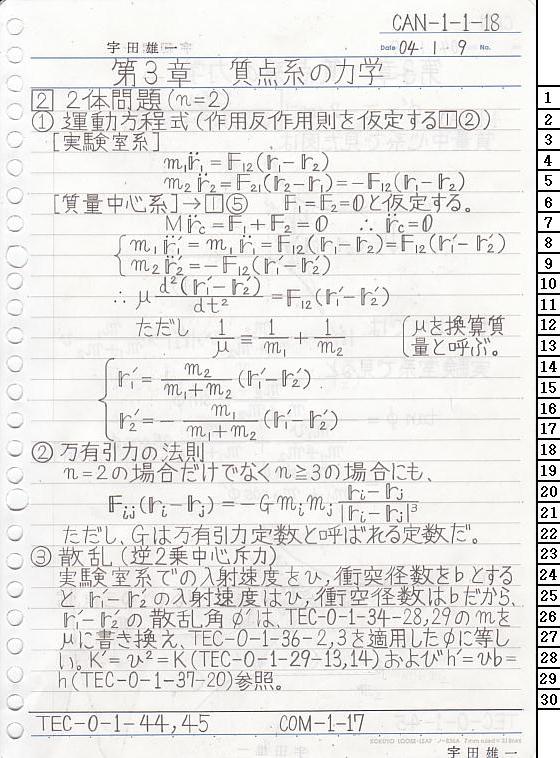 CAN-1-1-18
宇田雄一
Date 04 1 9 No.
第3章 質点系の力学
[2] 2体問題(n=2)
① 運動方程式(作用反作用則を仮定する[1]②)
[実験室系]
m₁r̈₁=F₁₂(r₁-r₂)
m₂r̈₂=F₂₁(r₂-r₁)=-F₁₂(r₁-r₂)
[質量中心系]→[1]⑤ F₁=F₂=0と仮定する。
Mr̈c=F₁+F₂=0 ∴r̈c=0
m₁r̈₁′=m₁r̈₁=F₁₂(r₁-r₂)=F₁₂(r₁′-r₂′)
m₂r̈₂′=-F₁₂(r₁′-r₂′)
∴ μ d²(r₁′-r₂′)/dt² =F₁₂(r₁′-r₂′)
ただし 1/μ ≡ 1/m₁ + 1/m₂ (μを換算質
量と呼ぶ。
r₁′= m₂/(m₁+m₂) (r₁′-r₂′)
r₂′=- m₁/(m₁+m₂) (r₁′-r₂′)
② 万有引力の法則
n=2の場合だけでなくn≧3の場合にも、
Fᵢⱼ(rᵢ-rⱼ)=-Gmᵢmⱼ (rᵢ-rⱼ)/|rᵢ-rⱼ|³
ただし、Gは万有引力定数と呼ばれる定数だ。
③ 散乱(逆2乗中心斥力)
実験室系での入射速度をv,衝突径数をbとする
と r₁′-r₂′の入射速度はv,衝突径数はbだから、
r₁′-r₂′の散乱角φ′は、TEC-0-1-34-28,29のmを
μに書き換え、TEC-0-1-36-2,3を適用したφに等し
い。K′=v²=K(TEC-0-1-29-13,14)およびh′=vb=
h(TEC-0-1-37-20)参照。
TEC-0-1-44,45 COM-1-17
KOKUYO LOOSE-LEAF
宇田雄一
1
2
3
4
5
6
7
8
9
10
11
12
13
14
15
16
17
18
19
20
21
22
23
24
25
26
27
28
29
30